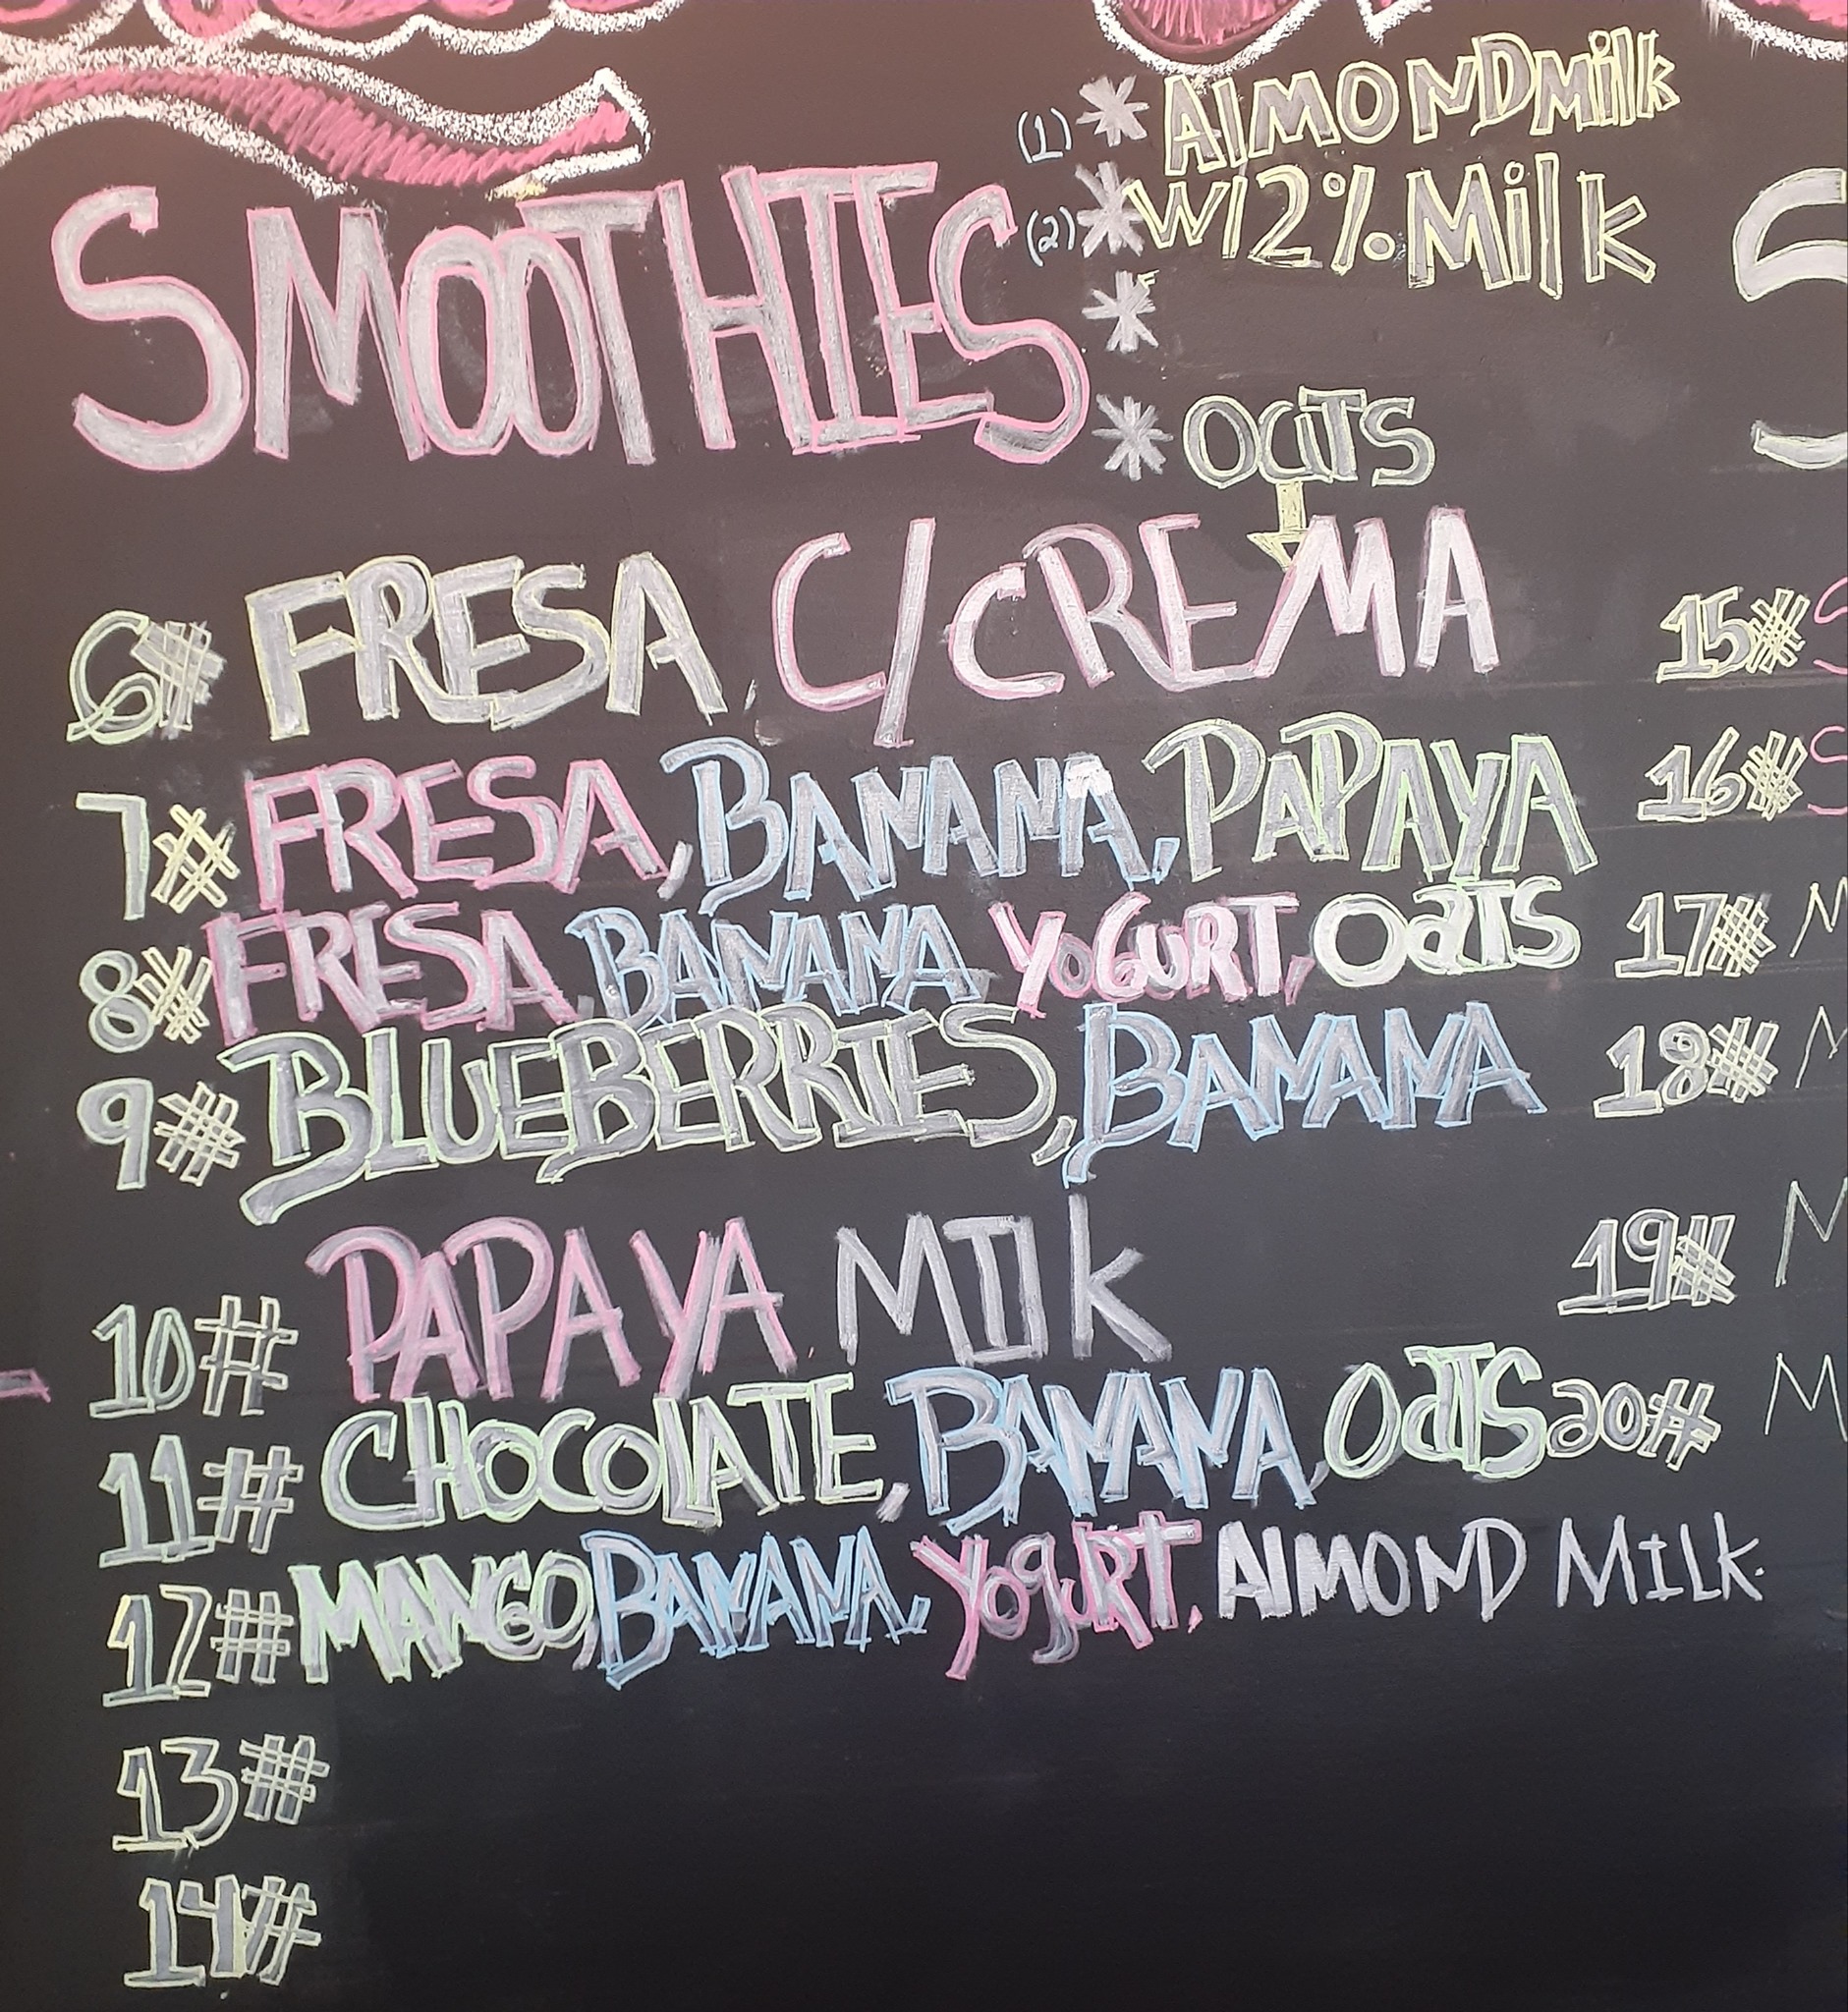 (1) * AlMONDMilk
SMOOTHIES (2) * W/2% Milk
*
* OaTS
6# FRESA, C/CREMA
15#
7# FRESA, BANANA, PAPAYA
16#
8# FRESA, BANANA YOGURT, OaTS
17#
9# BLUEBERRIES, BANANA
18#
10# PAPAYA MILk
19#
11# CHOCOLATE, BANANA, OaTS
20#
12# MANGO, BANANA, YogURT, AlMOND MILK.
13#
14#